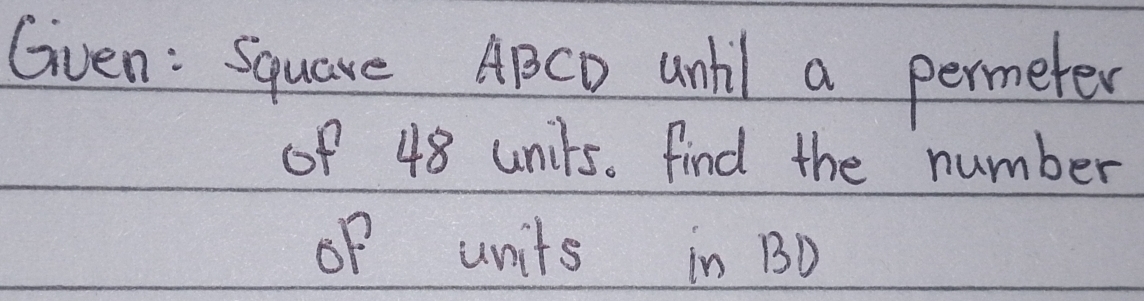 Given: Square ABCD until a permeter
of 48 units. find the number
of units in BD